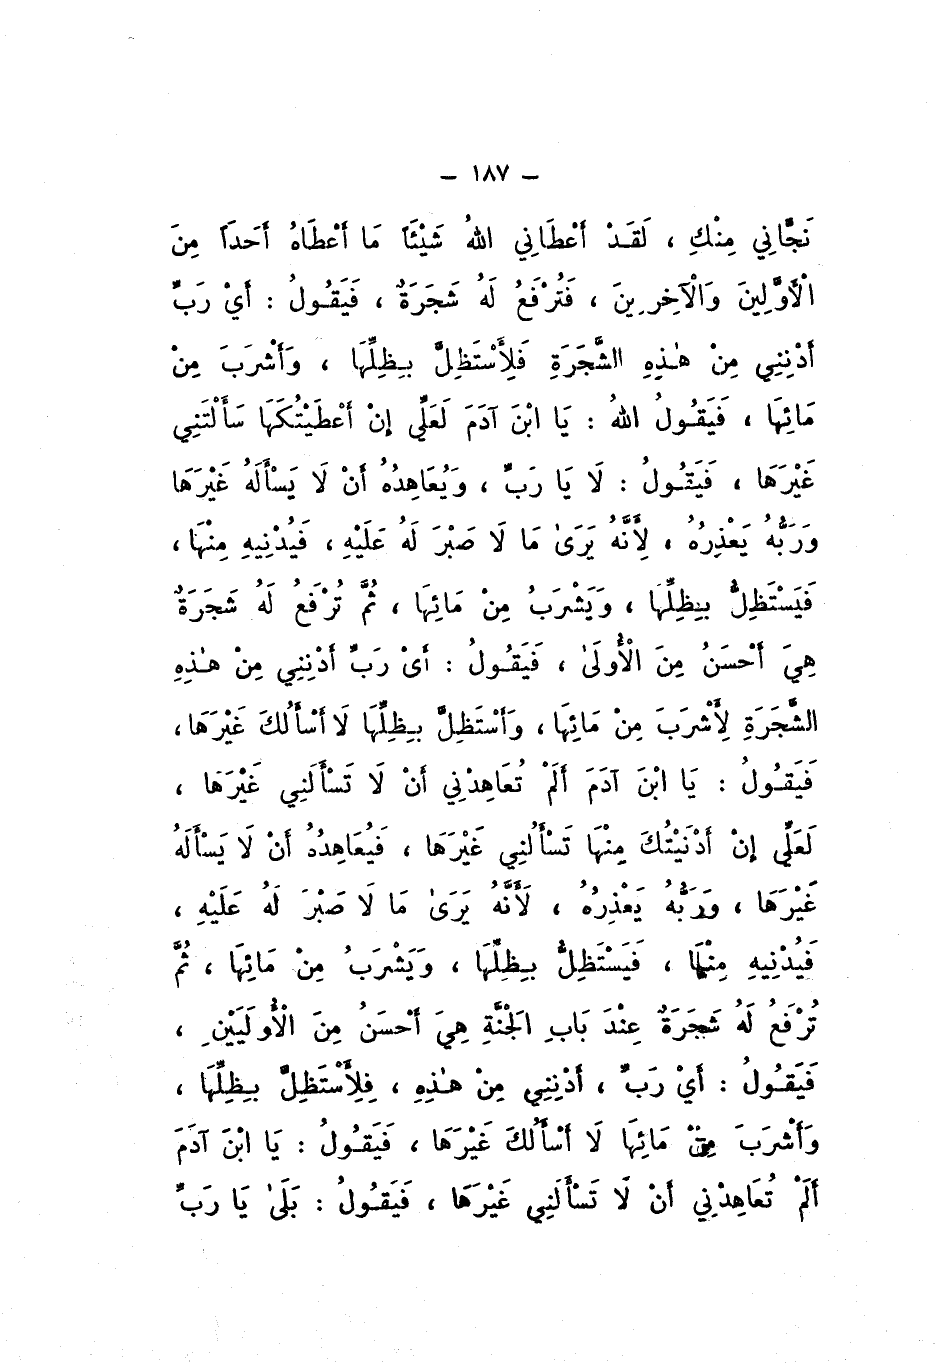 — ١٨٧ —
نَجَّانِي مِنْكِ ، لَقَدْ أَعْطَانِي اللهُ شَيْئاً مَا أَعْطَاهُ أَحَداً مِنَ
الْأَوَّلِينَ وَالْآخِرِينَ ، فَتُرْفَعُ لَهُ شَجَرَةٌ ، فَيَقُولُ : أَيْ رَبِّ
أَدْنِنِي مِنْ هٰذِهِ الشَّجَرَةِ فَلِأَسْتَظِلَّ بِظِلِّهَا ، وَأَشْرَبَ مِنْ
مَائِهَا ، فَيَقُولُ اللهُ : يَا ابْنَ آدَمَ لَعَلِّي إِنْ أَعْطَيْتُكَهَا سَأَلْتَنِي
غَيْرَهَا ، فَيَقُولُ : لَا يَا رَبِّ ، وَيُعَاهِدُهُ أَنْ لَا يَسْأَلَهُ غَيْرَهَا
وَرَبُّهُ يَعْذِرُهُ ، لِأَنَّهُ يَرَىٰ مَا لَا صَبْرَ لَهُ عَلَيْهِ ، فَيُدْنِيهِ مِنْهَا ،
فَيَسْتَظِلُّ بِظِلِّهَا ، وَيَشْرَبُ مِنْ مَائِهَا ، ثُمَّ تُرْفَعُ لَهُ شَجَرَةٌ
هِيَ أَحْسَنُ مِنَ الْأُولَىٰ ، فَيَقُولُ : أَىْ رَبِّ أَدْنِنِي مِنْ هٰذِهِ
الشَّجَرَةِ لِأَشْرَبَ مِنْ مَائِهَا ، وَأَسْتَظِلَّ بِظِلِّهَا لَا أَسْأَلُكَ غَيْرَهَا ،
فَيَقُولُ : يَا ابْنَ آدَمَ أَلَمْ تُعَاهِدْنِي أَنْ لَا تَسْأَلَنِي غَيْرَهَا ،
لَعَلِّي إِنْ أَدْنَيْتُكَ مِنْهَا تَسْأَلُنِي غَيْرَهَا ، فَيُعَاهِدُهُ أَنْ لَا يَسْأَلَهُ
غَيْرَهَا ، وَرَبُّهُ يَعْذِرُهُ ، لَأَنَّهُ يَرَىٰ مَا لَا صَبْرَ لَهُ عَلَيْهِ ،
فَيُدْنِيهِ مِنْهَا ، فَيَسْتَظِلُّ بِظِلِّهَا ، وَيَشْرَبُ مِنْ مَائِهَا ، ثُمَّ
تُرْفَعُ لَهُ شَجَرَةٌ عِنْدَ بَابِ الْجَنَّةِ هِيَ أَحْسَنُ مِنَ الْأُولَيَيْنِ ،
فَيَقُولُ : أَيْ رَبِّ ، أَدْنِنِي مِنْ هٰذِهِ ، فِلِأَسْتَظِلَّ بِظِلِّهَا ،
وَأَشْرَبَ مِنْ مَائِهَا لَا أَسْأَلُكَ غَيْرَهَا ، فَيَقُولُ : يَا ابْنَ آدَمَ
أَلَمْ تُعَاهِدْنِي أَنْ لَا تَسْأَلَنِي غَيْرَهَا ، فَيَقُولُ : بَلَىٰ يَا رَبِّ